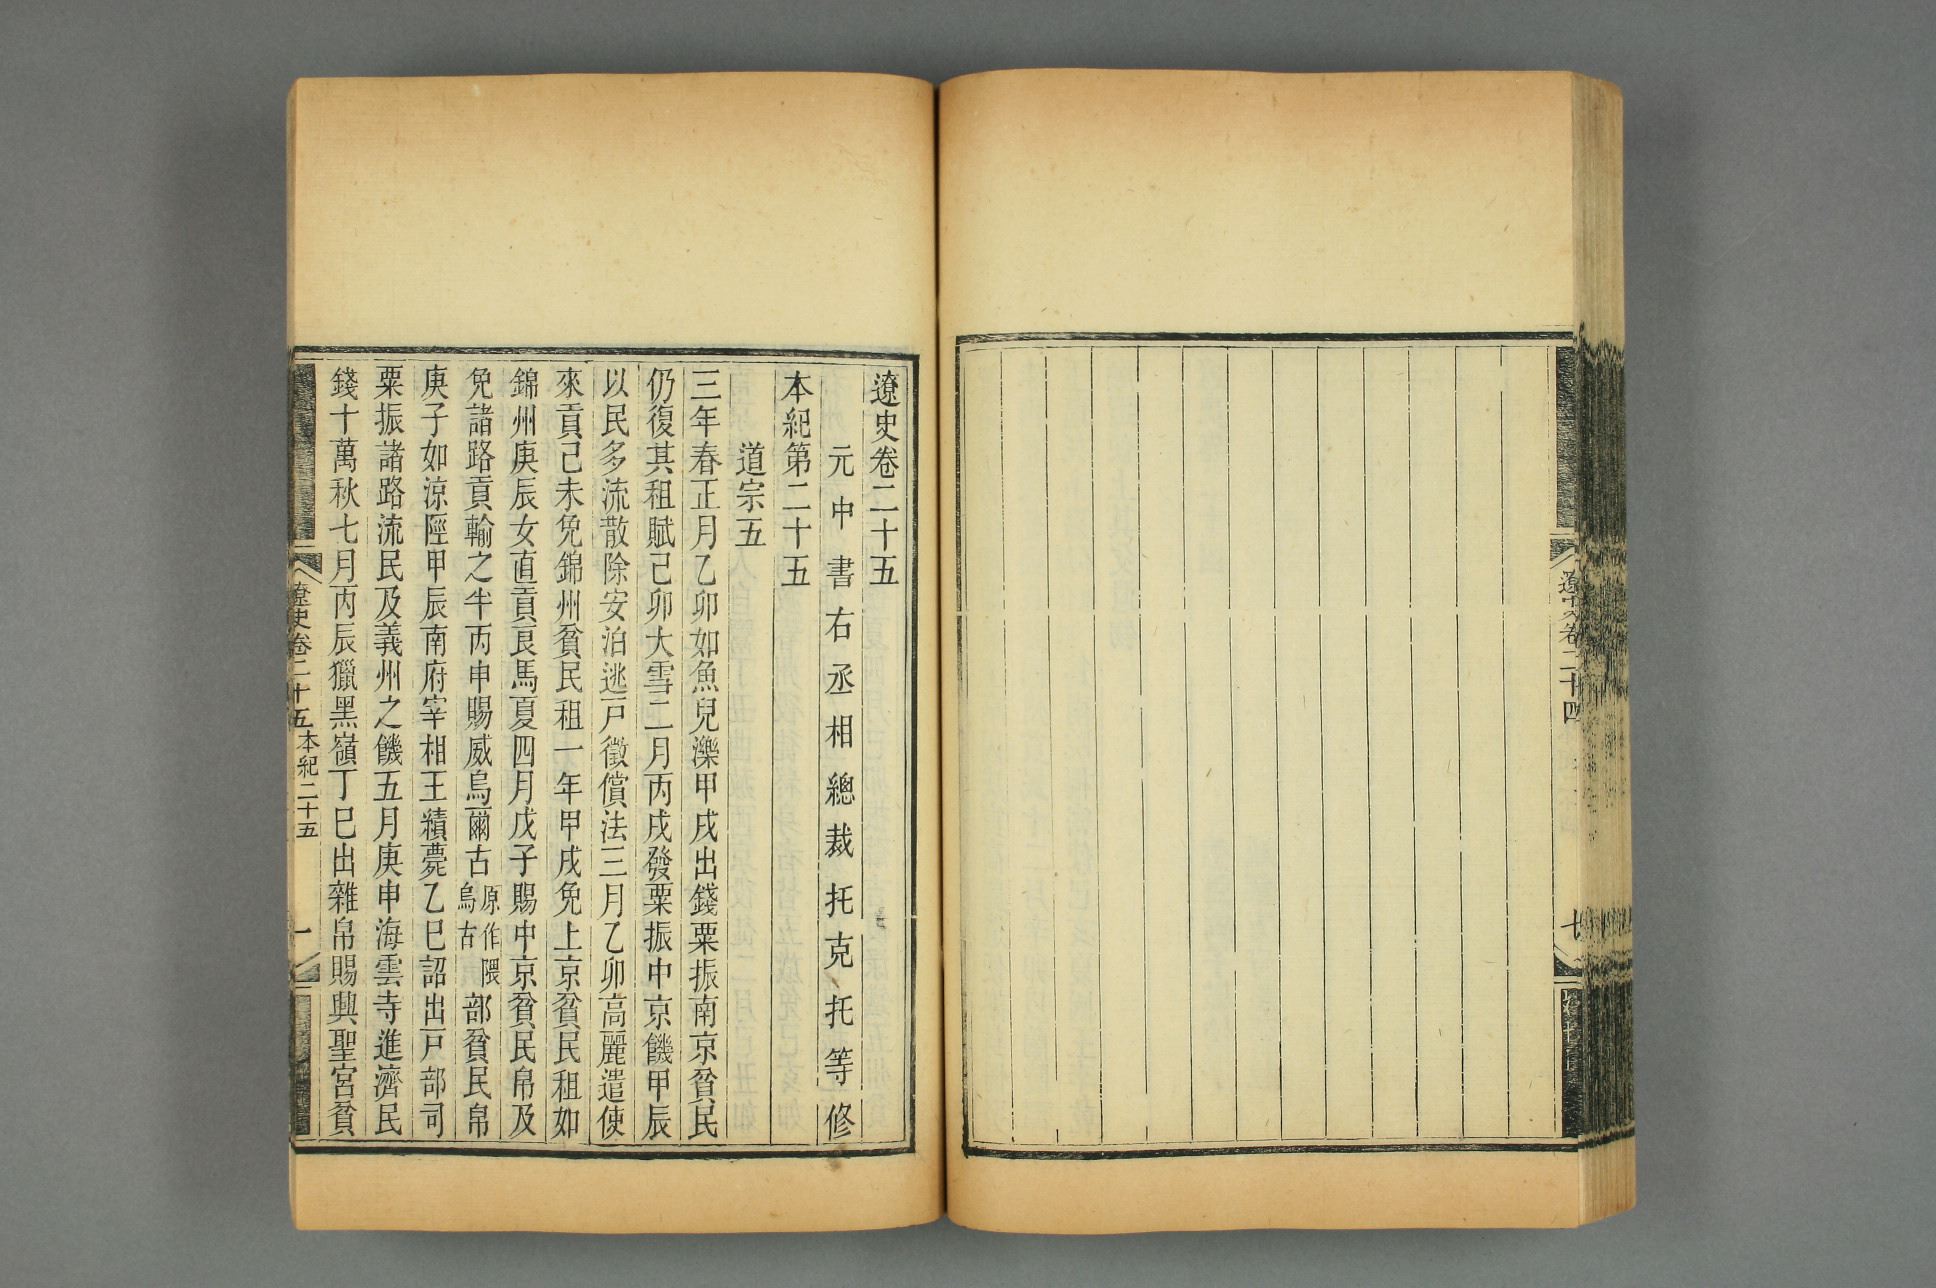 遼史卷二十四
七
遼史卷二十五
元中書右丞相總裁托克托等修
本紀第二十五
道宗五
三年春正月乙卯如魚兒濼甲戌出錢粟振南京貧民
仍復其租賦己卯大雪二月丙戌發粟振中京饑甲辰
以民多流散除安泊逃戸徵償法三月乙卯高麗遣使
來貢己未免錦州貧民租一年甲戌免上京貧民租如
錦州庚辰女直貢良馬夏四月戊子賜中京貧民帛及
免諸路貢輸之半丙申賜威烏爾古原作隈烏古部貧民帛
庚子如涼陘甲辰南府宰相王績薨乙巳詔出戸部司
粟振諸路流民及義州之饑五月庚申海雲寺進濟民
錢十萬秋七月丙辰獵黑嶺丁巳出雜帛賜興聖宮貧
遼史卷二十五 本紀二十五 一